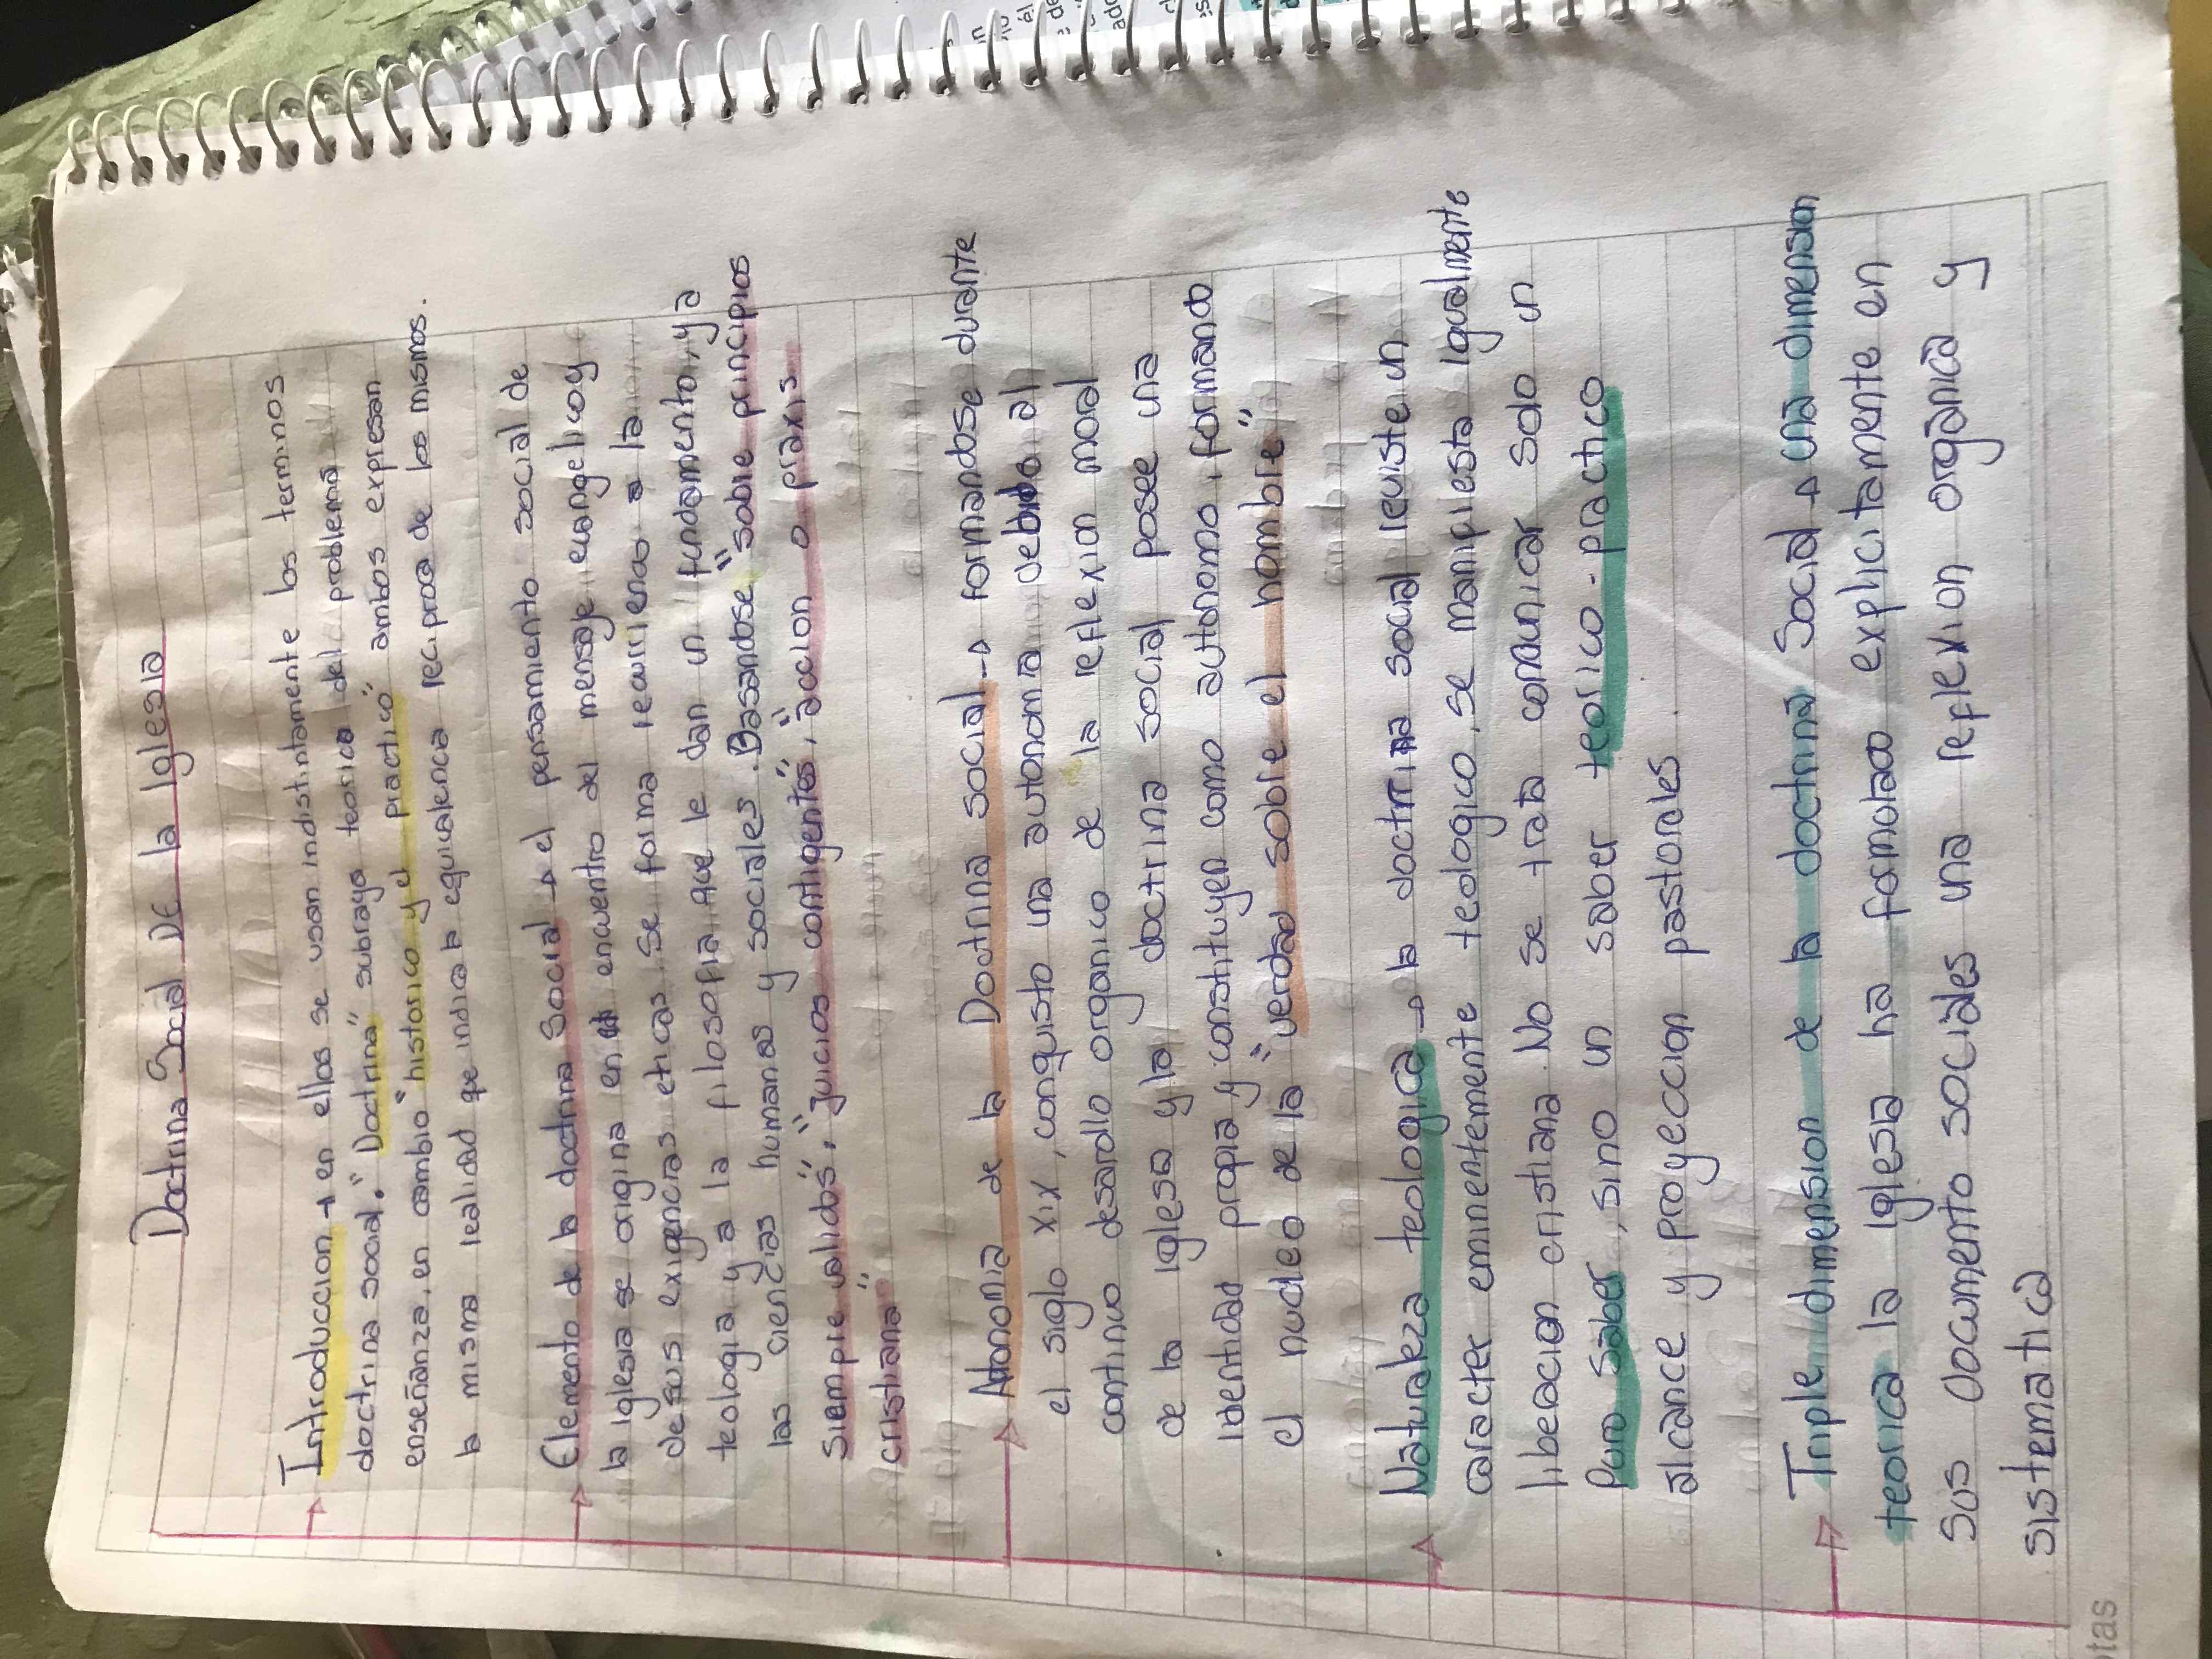 Doctrina Social DE la Iglesia
Introduccion → en ellos se usan indistintamente los terminos
doctrina social. "Doctrina" subraya teorico del problema
enseñanza, en cambio "historico y el practico" ambos expresan
la misma realidad que indica la equivalenca reciproca de los mismos.
Elemento de la doctrina Social → el pensamiento social de
la iglesia se origina en el encuentro del mensaje evangelico y
de sus exigencias eticas se forma recurriendo a la
teologia y a la filosofia que le dan un fundamento, y a
las ciencias humanas y sociales. Basandose "sobre principios
siempre validos", "juicios contigentes", "accion o praxis
cristiana"
Atonomia de la Doctrina social → formandose durante
el siglo XIX, conquisto una autonoma debido al
continuo desarollo organico de la reflexion moral
de la iglesa y la doctrina social posee una
identidad propia y constituyen como autonomo, formando
el nucleo de la "verdad sobre el hombre"
Naturaleza teologica → la doctrina social reviste un
caracter eminentemente teologico, se manifiesta igualmente
liberacion cristiana. No se trata comunicar solo un
Puro saber, sino un saber teorico-practico
alcance y proyeccion pastorales.
Triple dimension de la doctrina Social → una dimension
teorica la iglesa ha formulado explicitamente en
sus documento sociales una reflexion organica y
sistematica
tas